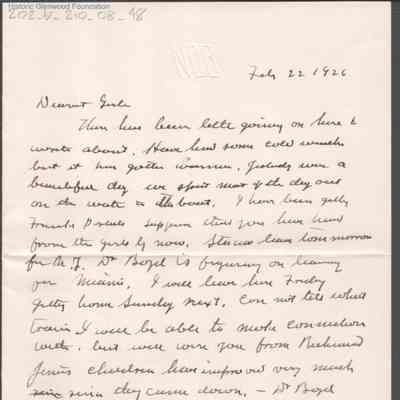 Historic Glenwood Foundation
202-V-210-08-48
Feb 22 1926
Dearest Girls
There has been little going on here to
write about. Have had some cold weather
but it has gotten warmer. Yesterday was a
beautiful day we spent most of the day out
on the water in the boat. I have been getting
suppose that you have heard
from the girls by now. leave tomorrow
for N.Y. Dr Bozel is figuring on leaving
for Miami. I will leave here Friday
getting home Sunday next. Can not tell what
train I will be able to make connection
with. but will wire you from Richmond
children have improved very much
since they came down. - Dr Bozel